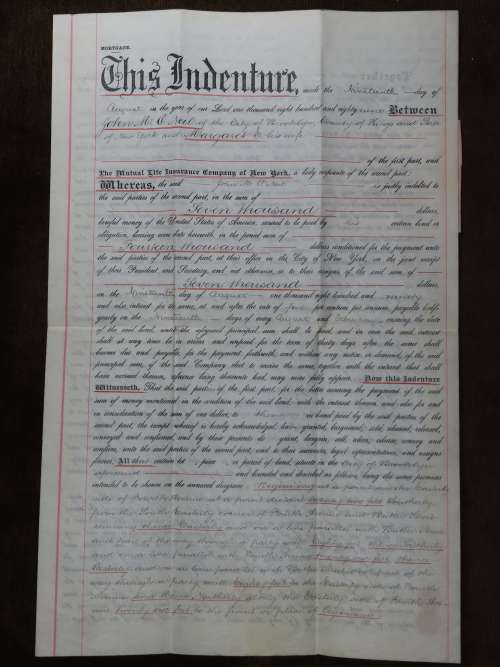 MORTGAGE.
This Indenture, made the Nineteenth day of
August in the year of our Lord one thousand eight hundred and eighty nine Between
John M. O'Neil of the City of Brooklyn, County of Kings and State
of New York and Margaret his wife
of the first part, and
The Mutual Life Insurance Company of New York, a body corporate of the second part:
Whereas, the said John M. O'Neil is justly indebted to
the said parties of the second part, in the sum of
Seven thousand dollars,
lawful money of the United States of America, secured to be paid by his certain bond or
obligation, bearing even date herewith, in the penal sum of
Fourteen thousand dollars conditioned for the payment unto
the said parties of the second part, at their office in the City of New York, on the joint receipt
of their President and Secretary, and not otherwise, or to their assigns, of the said sum of
Seven thousand dollars,
on the Nineteenth day of August one thousand eight hundred and ninety
and also interest for the same, at and after the rate of five per centum per annum, payable half-
yearly on the Nineteenth days of every August and ensuing the date
of the said bond, until the aforesaid principal sum shall be paid, and in case the said interest
shall at any time be in arrear and unpaid for the term of thirty days after the same shall
become due and payable, for the payment forthwith, and without any notice or demand, of the said
principal sum, if the said Company elect to receive the same, together with the interest that shall
have accrued thereon, reference being thereunto had, may more fully appear. Now this Indenture
Witnesseth, That the said parties of the first part, for the better securing the payment of the said
sum of money mentioned in the condition of the said bond, with the interest thereon, and also for and
in consideration of the sum of one dollar, to them in hand paid by the said parties of the
second part, the receipt whereof is hereby acknowledged, have granted, bargained, sold, aliened, released,
conveyed and confirmed, and by these presents do grant, bargain, sell, alien, release, convey and
confirm, unto the said parties of the second part, and to their successors, legal representatives, and assigns
forever, All that certain lot, piece or parcel of land, situate in the City of Brooklyn
aforesaid and bounded and described as follows, being the same premises
intended to be shown on the annexed diagram: Beginning at a point on the
side of Fourth Avenue at a point distant feet Southerly
from the corner of Fourth Avenue and Butler Street
running thence on a line parallel with Butler Street
and part of the way through a party wall
and on a line parallel with Fourth Avenue feet thence
on a line parallel with Butler Street and part of the
way through a party wall feet to the side of Fourth
Avenue and thence Northerly along the side of Fourth Ave-
nue feet to the point or place of beginning.